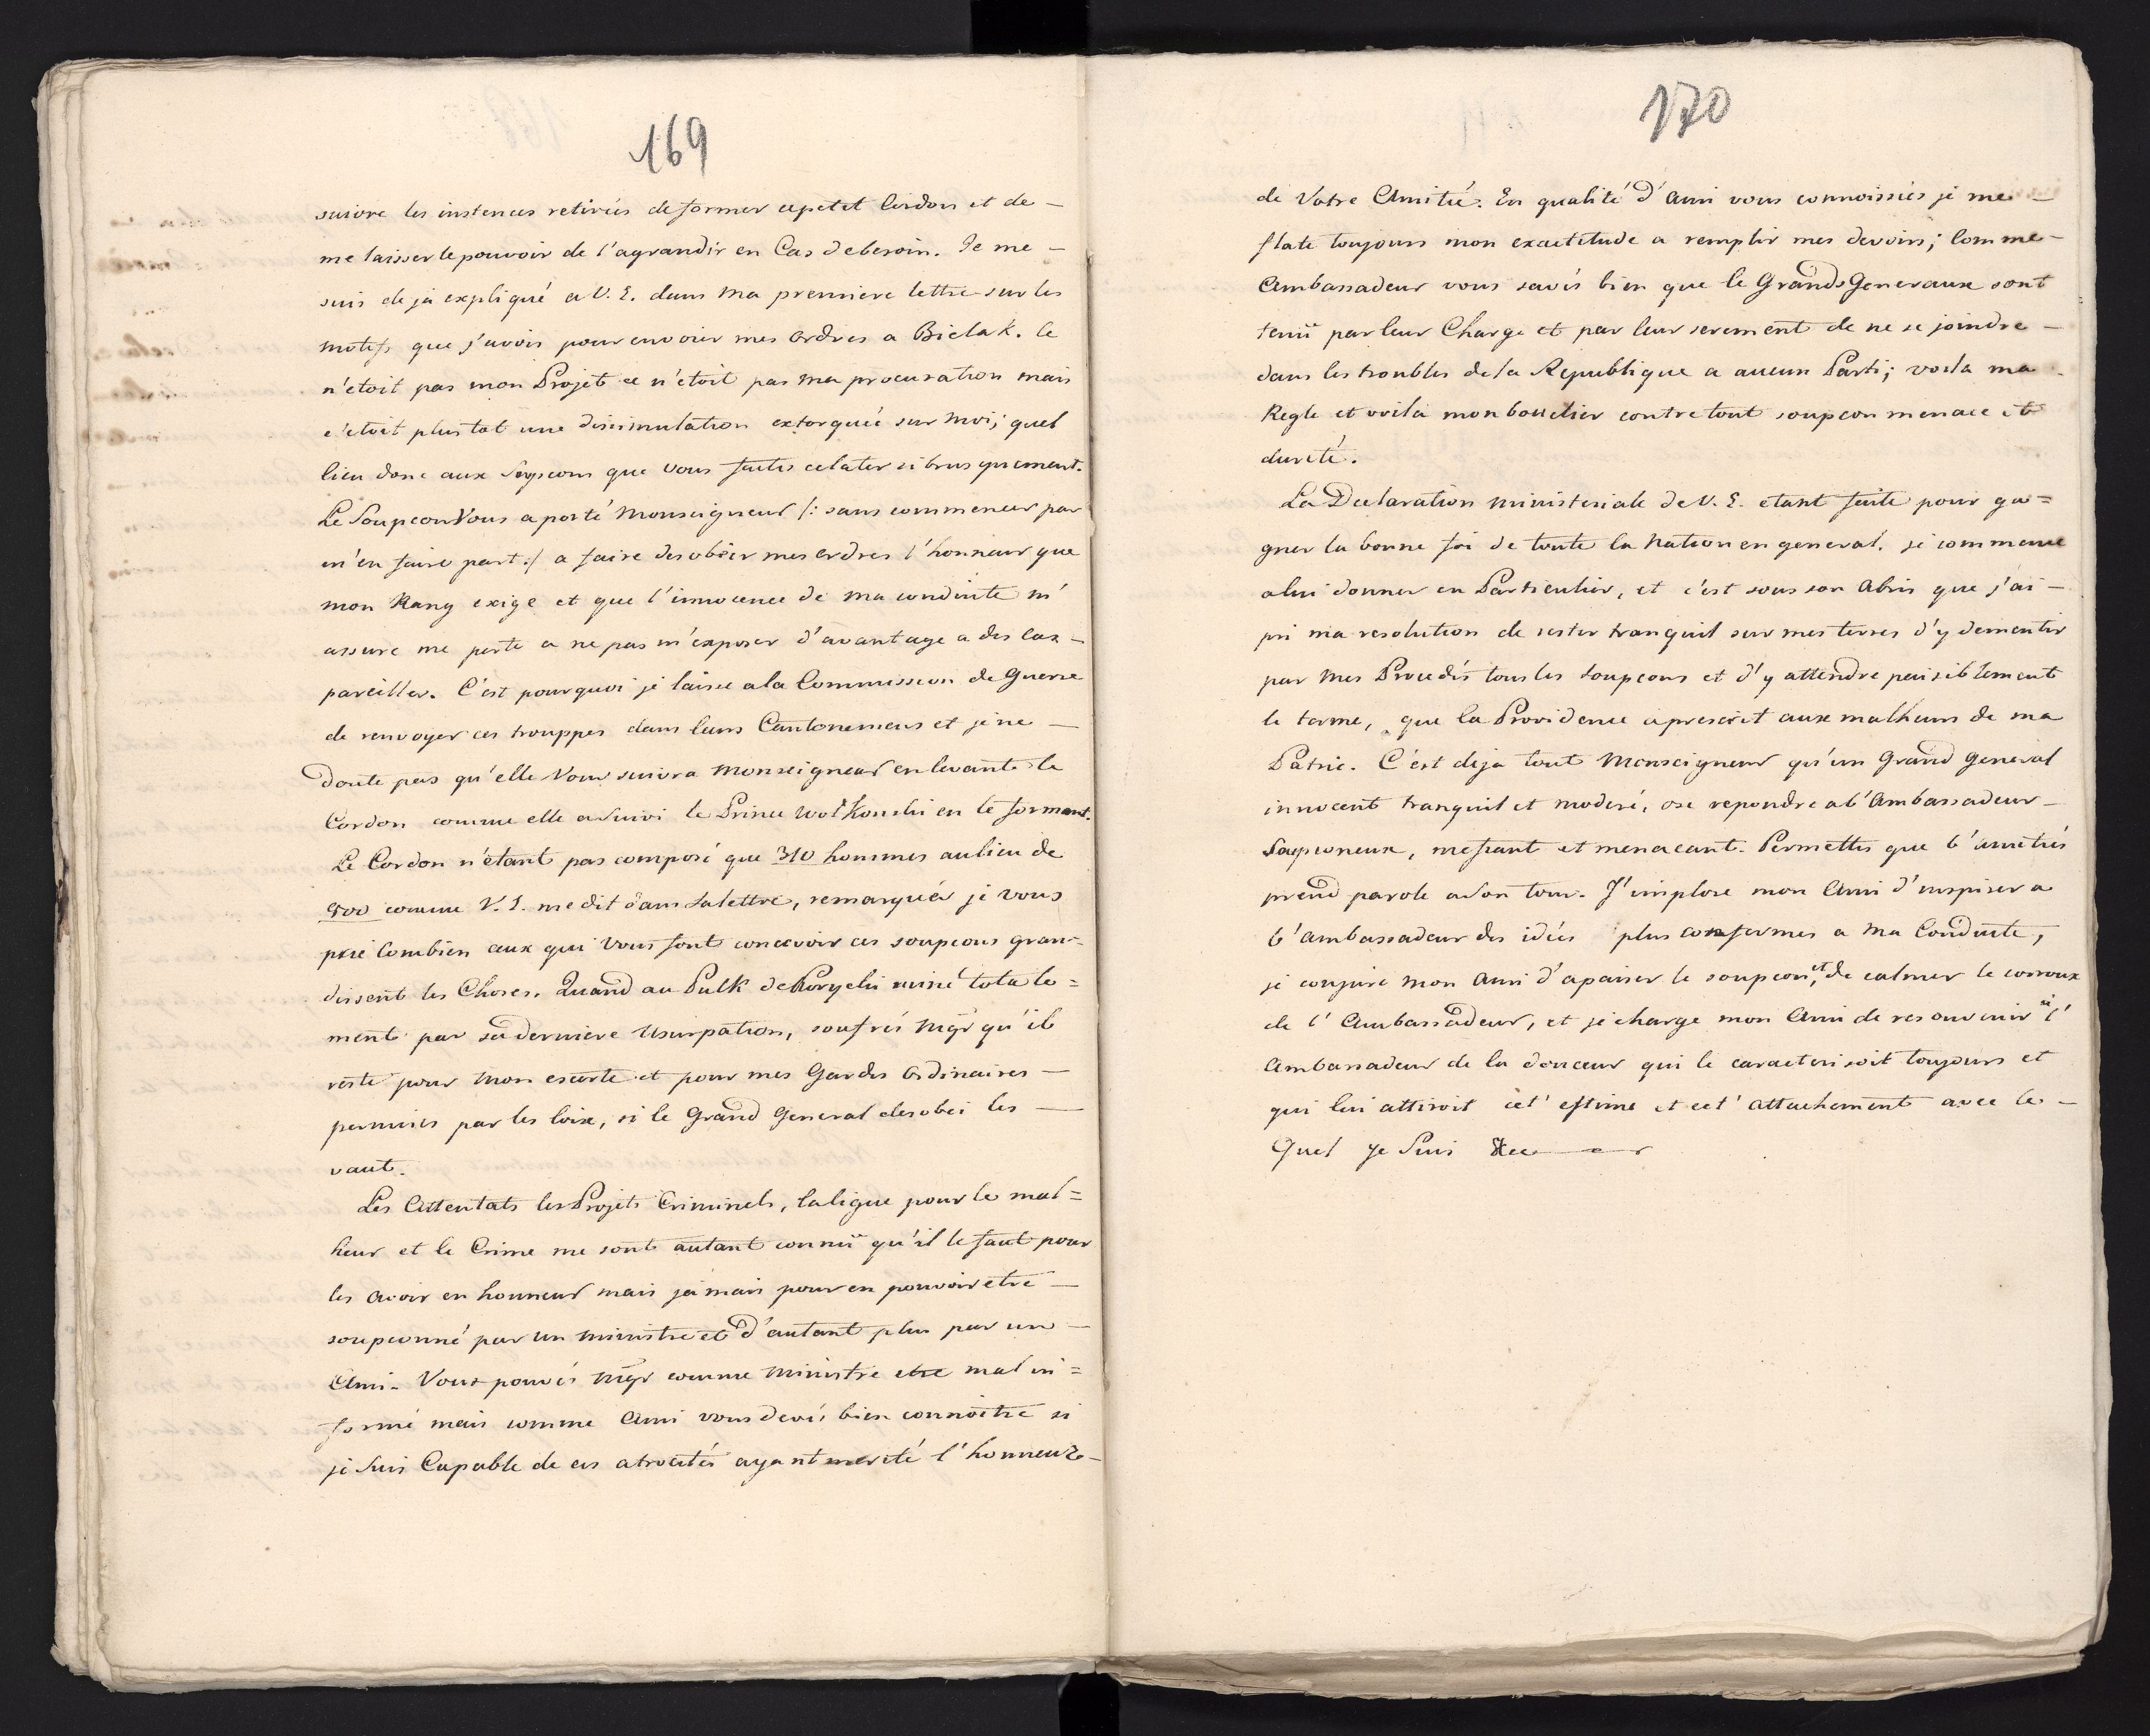 169
suivre les instences retirées de former ce petit Cordon et de —
me laisser le pouvoir de l'agrandir en Cas de besoin. Je me —
suis deja expliqué a V. E. dans Ma premiere lettre sur les
motifs que j'avois pour envoier mes ordres a Bielak. Ce
n'etoit pas mon Projet ce n'etoit pas ma procuration mais
c'etoit plustot une dissimulation extorquée sur Moi; quel
lieu donc aux Soupçons que vous faites eclater si brusquement.
Le Soupcon Vous a porté Monseigneur /: sans commencer par
m'en faire part :/ a faire desobeir mes ordres l'honneur que
mon Rang exige et que l'innocence de ma conduite m'
assure me porte a ne pas m'exposer d'avantage a des Cas —
pareilles. C'est pourquoi je laisse a la Commission de Guerre
de renvoyer ces trouppes dans leurs Cantonemens et je ne —
doute pas qu'elle Vous suivra Monseigneur en levant le
Cordon comme elle a suivi le Prince Wolkonski en le formant.
Le Cordon n'étant pas composé que 310 hommes au lieu de
900 comme V. E. me dit dans sa lettre, remarqués je vous
prie Combien ceux qui Vous font concevoir ces soupcons gran=
dissent les Choses. Quand au Pulk de Korycki ruiné totale=
ment par sa derniere Usurpation, soufrés Mgr qu'il
reste pour Mon escorte et pour mes Gardes Ordinaires —
permises par les loix, si le Grand General desobei les —
vaut.
Les Attentats les Projets Criminels, la ligue pour le mal=
heur et le Crime me sont autant connü qu'il le faut pour
les avoir en honneur mais jamais pour en pouvoir etre —
soupconné par un Ministre et d'autant plus par un —
Ami. Vous pouvés Mgr comme Ministre etre mal in=
formé mais comme Ami vous devés bien connoitre si
je Suis Capable de ces atrocités ayant merité l'honneur —
170
de Votre Amitié. En qualité d'Ami vous connoissies je me —
flate toujours mon exactitude a remplir mes devoirs; Comme —
Ambassadeur vous savés bien que le Grands Generaux sont
tenü par leur Charge et par leur serement de ne se joindre —
dans les troubles de la Republique a aucun Parti; voila ma
Regle et voila mon bouclier contre tout soupcon menace et
dureté.
La Declaration ministeriale de V. E. etant faite pour ga=
gner la bonne foi de toute la Nation en general. je commence
a lui donner en Particulier, et c'est sous son Abris que j'ai —
pri ma resolution de rester tranquil sur mes terres d'y dementir
par mes Procedés tous les soupcons et d'y attendre paisiblement
le terme, que la Providence a prescrit aux malheurs de ma
Patrie. C'est deja tout Monseigneur qu'un Grand General
innocent tranquil et moderé, ose repondre a l'Ambassadeur —
Soupconeux, mefiant et menacant. Permettes que l'amitiés
prend parole a Son tour. J'implore mon Ami d'inspirer a
l'ambassadeur des idées plus conformes a Ma Conduite,
je conjure mon Ami d'apaiser le soupcon, et de calmer le corroux
de l'Ambassadeur, et je charge mon Ami de resouvenir a l'
Ambassadeur de la douceur qui le caracterisoit toujours et
qui lui attiroit cet' estime et cet' attachement avec le —
Quel Je Suis &c